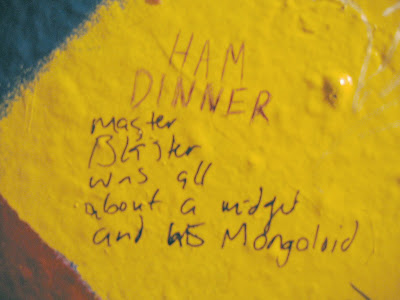 HAM
DINNER
master
Blaster
was all
about a midget
and his Mongoloid